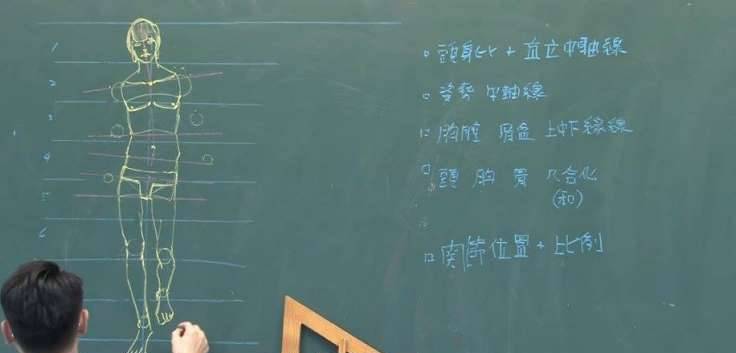 1
2
3
4
5
6
頭身比 + 直立中軸線
姿勢 中軸線
胸腔 骨盆 上下緣線
頭 胸 骨 几合化
(和)
関節位置 + 比例